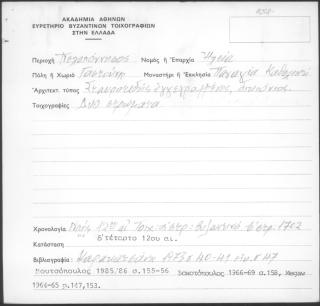 ΑΚΑΔΗΜΙΑ ΑΘΗΝΩΝ
ΕΥΡΕΤΗΡΙΟ ΒΥΖΑΝΤΙΝΩΝ ΤΟΙΧΟΓΡΑΦΙΩΝ
ΣΤΗΝ ΕΛΛΑΔΑ
Περιοχή Πελοπόννησος Νομός ή Επαρχία Ηλεία
Πόλη ή Χωριό Γαστούνη Μοναστήρι ή Εκκλησία Παναγία Καθολική
Αρχιτεκτ. τύπος Σταυροειδής εγγεγραμμένος, δικιόνιος
Τοιχογραφίες Δύο στρώματα
Χρονολογία Ναός 12ου αι. Τοιχ: α'στρ: Βυζαντινό β'στρ. 1702
Κατάσταση β'τέταρτο 12ου αι.
Βιβλιογραφία: 1973 40-41 47
Μουτσόπουλος 1985/86 σ.155-56 1966-69 σ.158, Megaw
1964-65 p.147,153.